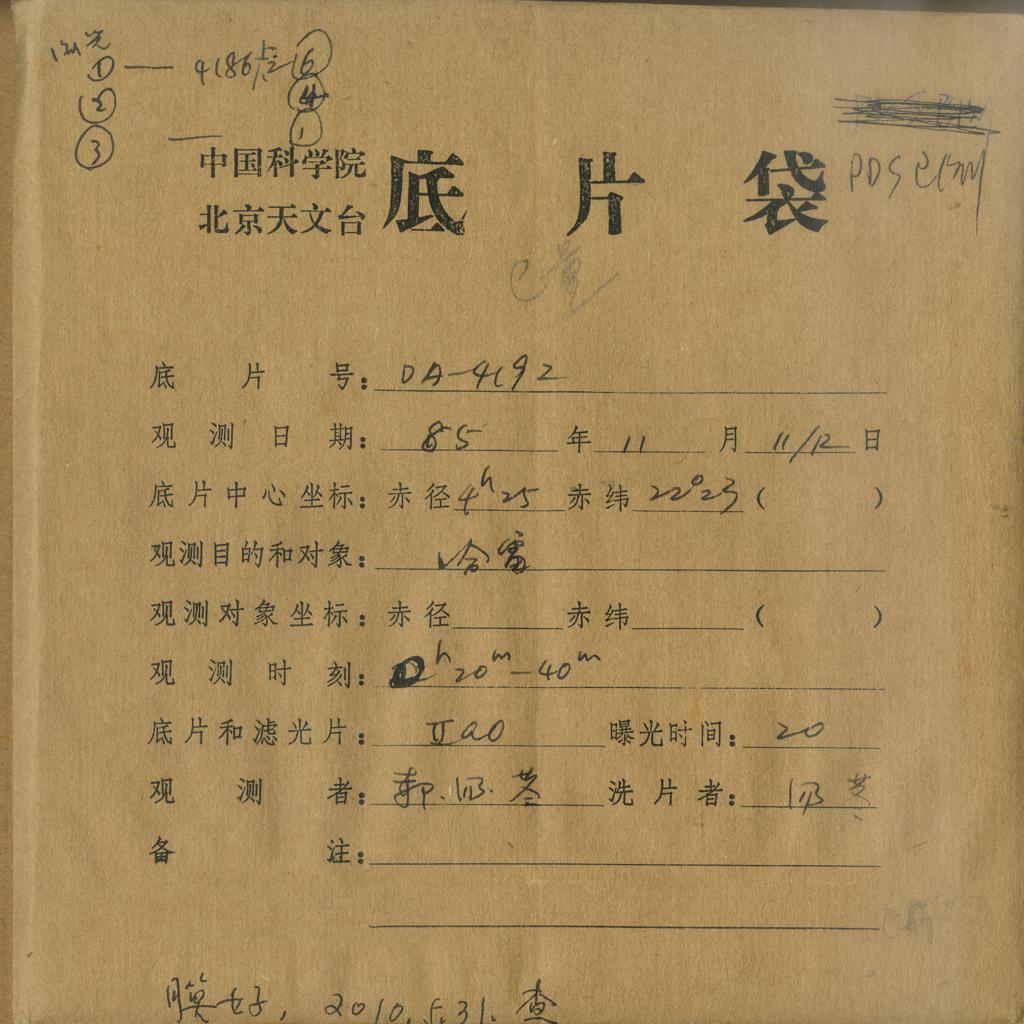 测光
① — 4186点 ⑥
② ④
③ — ①
PDS已测
中国科学院
北京天文台
底片袋
已量
底片号: DA-4192
观测日期: 85年11月11/12日
底片中心坐标: 赤径4ʰ25 赤纬22°23 ( )
观测目的和对象: 哈雷
观测对象坐标: 赤径 赤纬 ( )
观测时刻: 0ʰ20ᵐ-40ᵐ
底片和滤光片: IIaO 曝光时间: 20
观测者: 洗片者:
备注:
膜好, 2010.5.31. 查